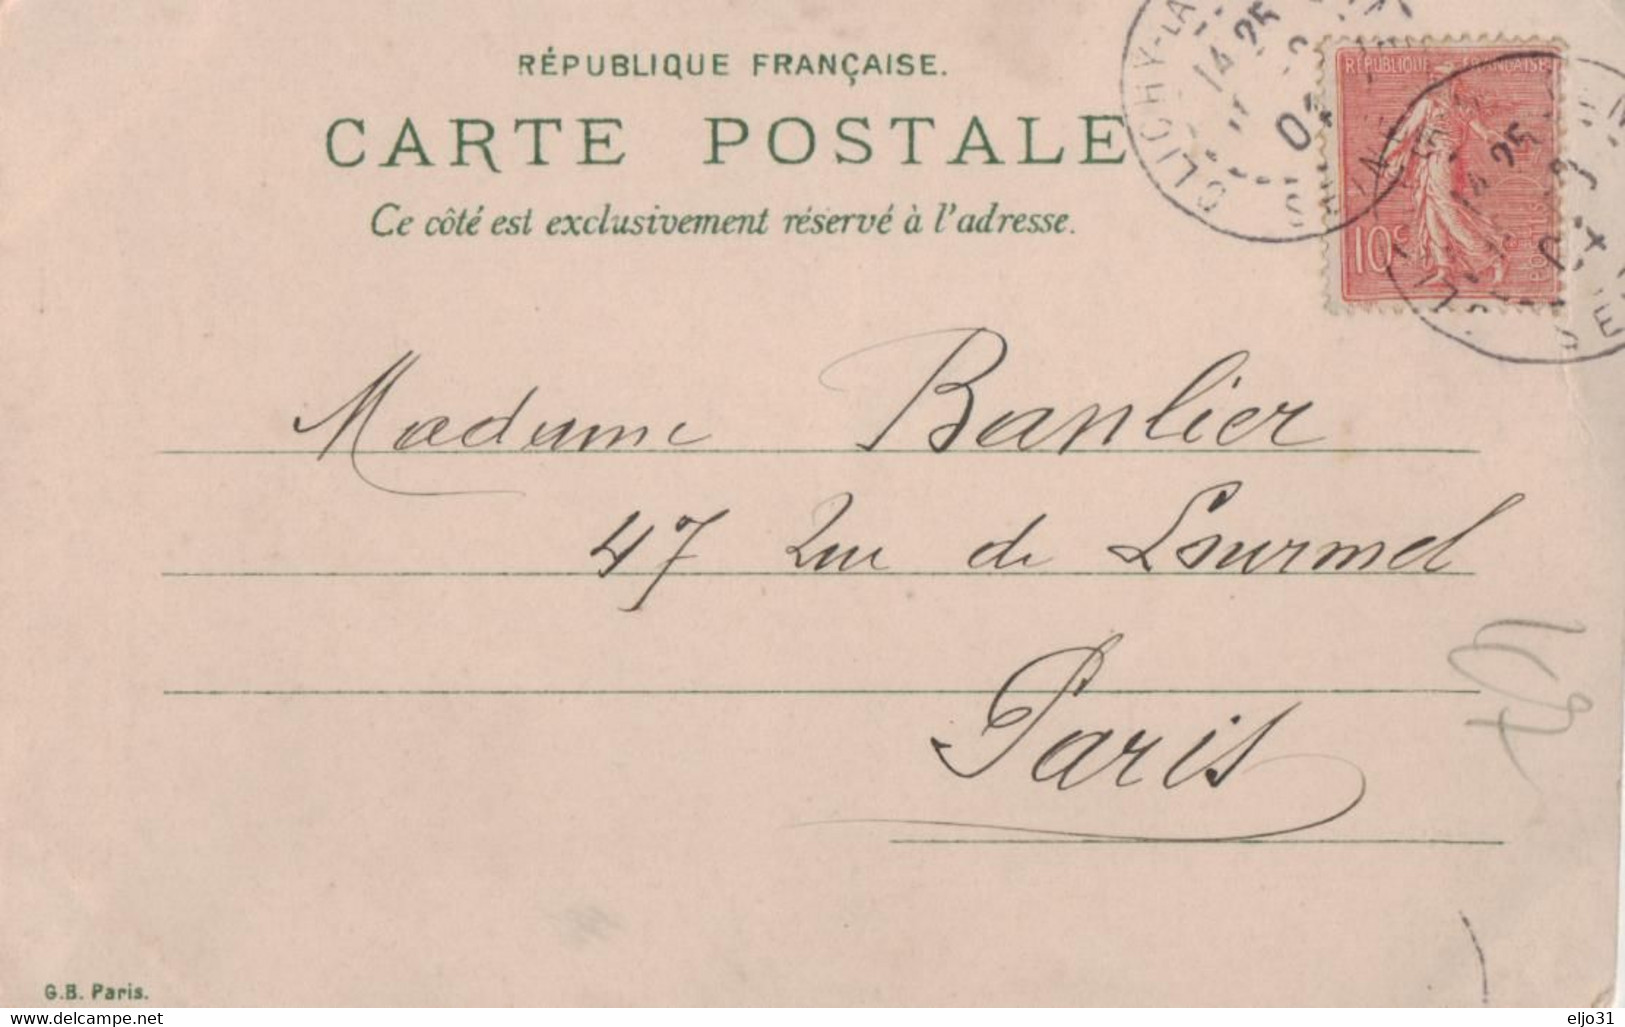 RÉPUBLIQUE FRANÇAISE.
CARTE POSTALE
Ce côté est exclusivement réservé à l'adresse.
CLICHY-LA
14 25
RÉPUBLIQUE FRANÇAISE
10c
14 25
Madame Banlier
47 Rue de Lourmel
Paris
G.B. Paris.
www.delcampe.net
eljo31